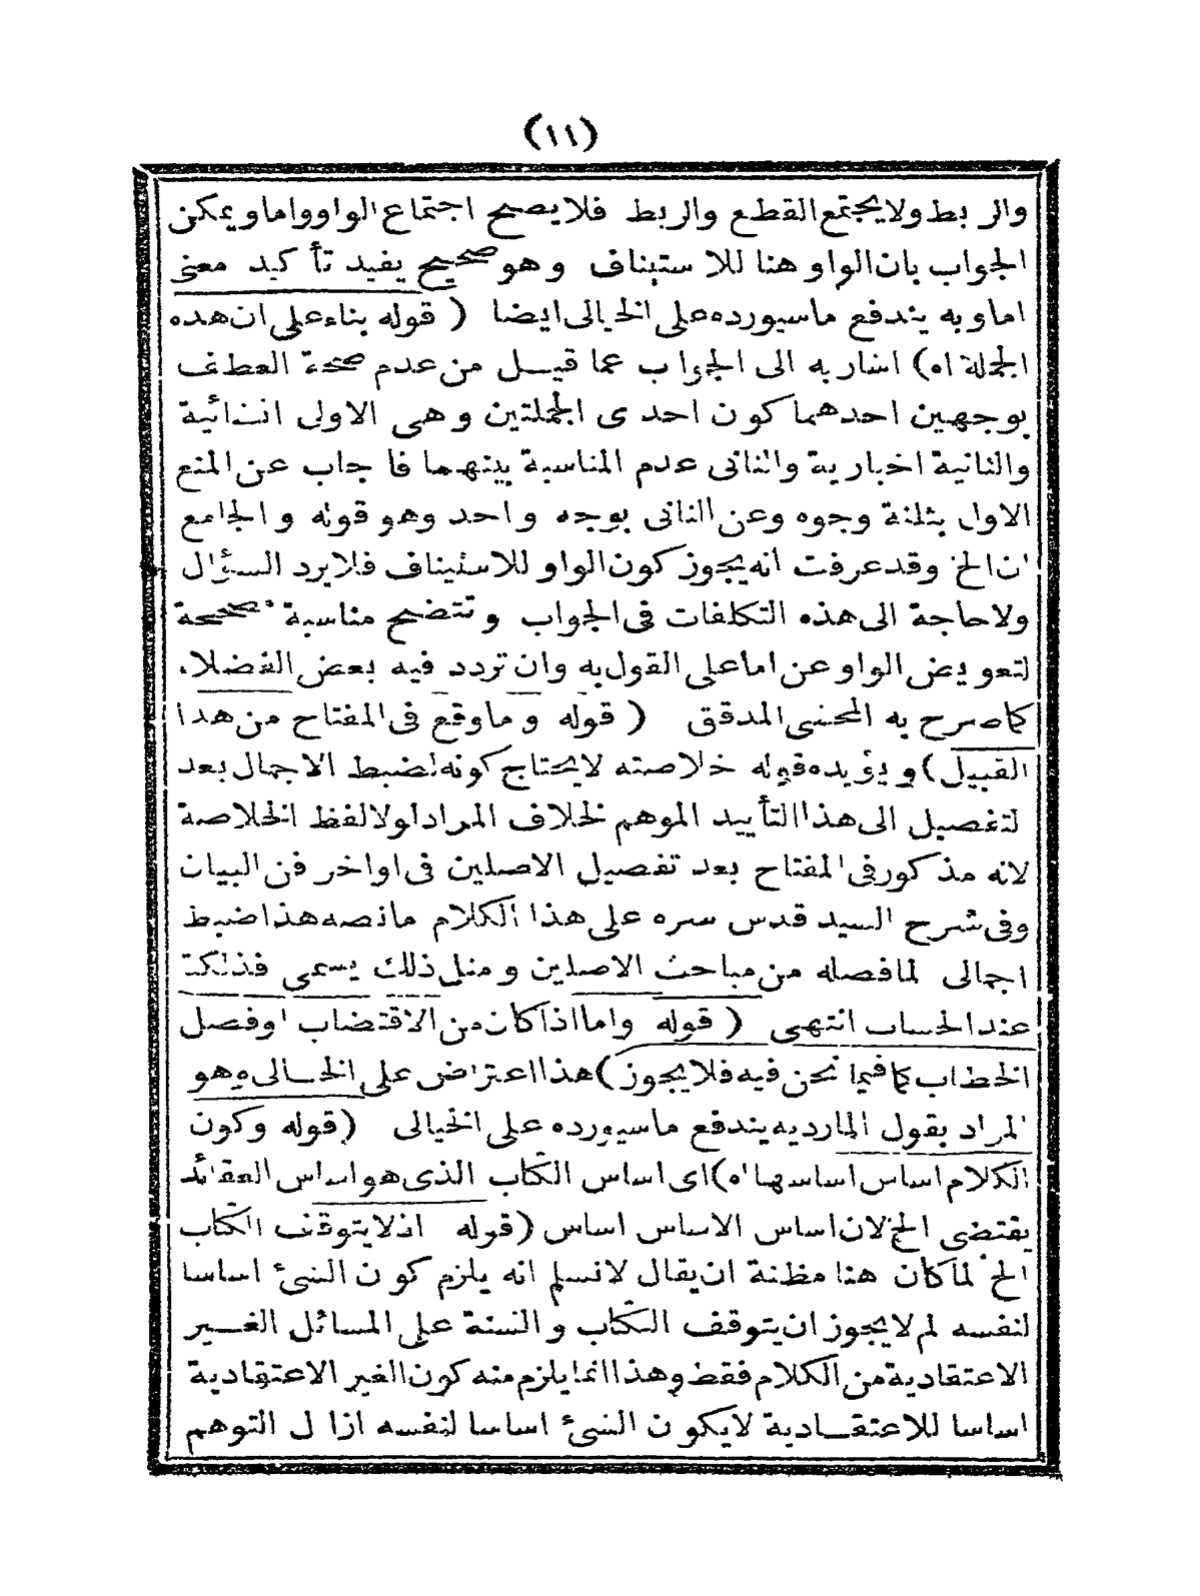 (١١)
والربط ولا يجتمع القطع والربط فلا يصح اجتماع الواو واما ويمكن
الجواب بان الواو هنا للاستيناف وهو صحيح يفيد تأكيد معنى
اما وبه يندفع ماسيورده على الخيالى ايضا (قوله بناء على ان هذه
الجملة اه) اشار به الى الجواب عما قيل من عدم صحة العطف
بوجهين احدهما كون احدى الجملتين وهى الاولى انشائية
والثانية اخبارية والثانى عدم المناسبة بينهما فاجاب عن المنع
الاول بثلثة وجوه وعن الثانى بوجه واحد وهو قوله والجامع
ان الخ وقد عرفت انه يجوز كون الواو للاستيناف فلا يرد السؤال
ولا حاجة الى هذه التكلفات فى الجواب وتتضح مناسبة صحيحة
لتعويض الواو عن اما على القول به وان تردد فيه بعض الفضلاء
كما صرح به المحشى المدقق (قوله وما وقع فى المفتاح من هذا
القبيل) ويؤيده قوله خلاصته لا يحتاج كونه لضبط الاجمال بعد
لتفصيل الى هذا التأييد الموهم لخلاف المراد اولا لفظ الخلاصة
لانه مذكور فى المفتاح بعد تفصيل الاصلين فى اواخر فن البيان
وفى شرح السيد قدس سره على هذا الكلام مانصه هذا ضبط
اجمالى لما فصله من مباحث الاصلين ومثل ذلك يسمى فذلكة
عند الحساب انتهى (قوله واما اذا كان من الاقتضاب او فصل
الخطاب كما فيما نحن فيه فلا يجوز) هذا اعتراض على الخيالى وهو
المراد بقول المار وبه يندفع ماسيورده على الخيالى (قوله وكون
الكلام اساس اساسها اه) اى اساس الكتاب الذى هو اساس العقائد
يقتضى الخ لان اساس الاساس اساس (قوله اذ لا يتوقف الكتاب
الخ لما كان هنا مظنة ان يقال لانسلم انه يلزم كون الشئ اساسا
لنفسه لم لا يجوز ان يتوقف الكتاب والسنة على المسائل الغير
الاعتقادية من الكلام فقط وهذا انما يلزم منه كون الغير الاعتقادية
اساسا للاعتقادية لا يكون الشئ اساسا لنفسه ازال التوهم